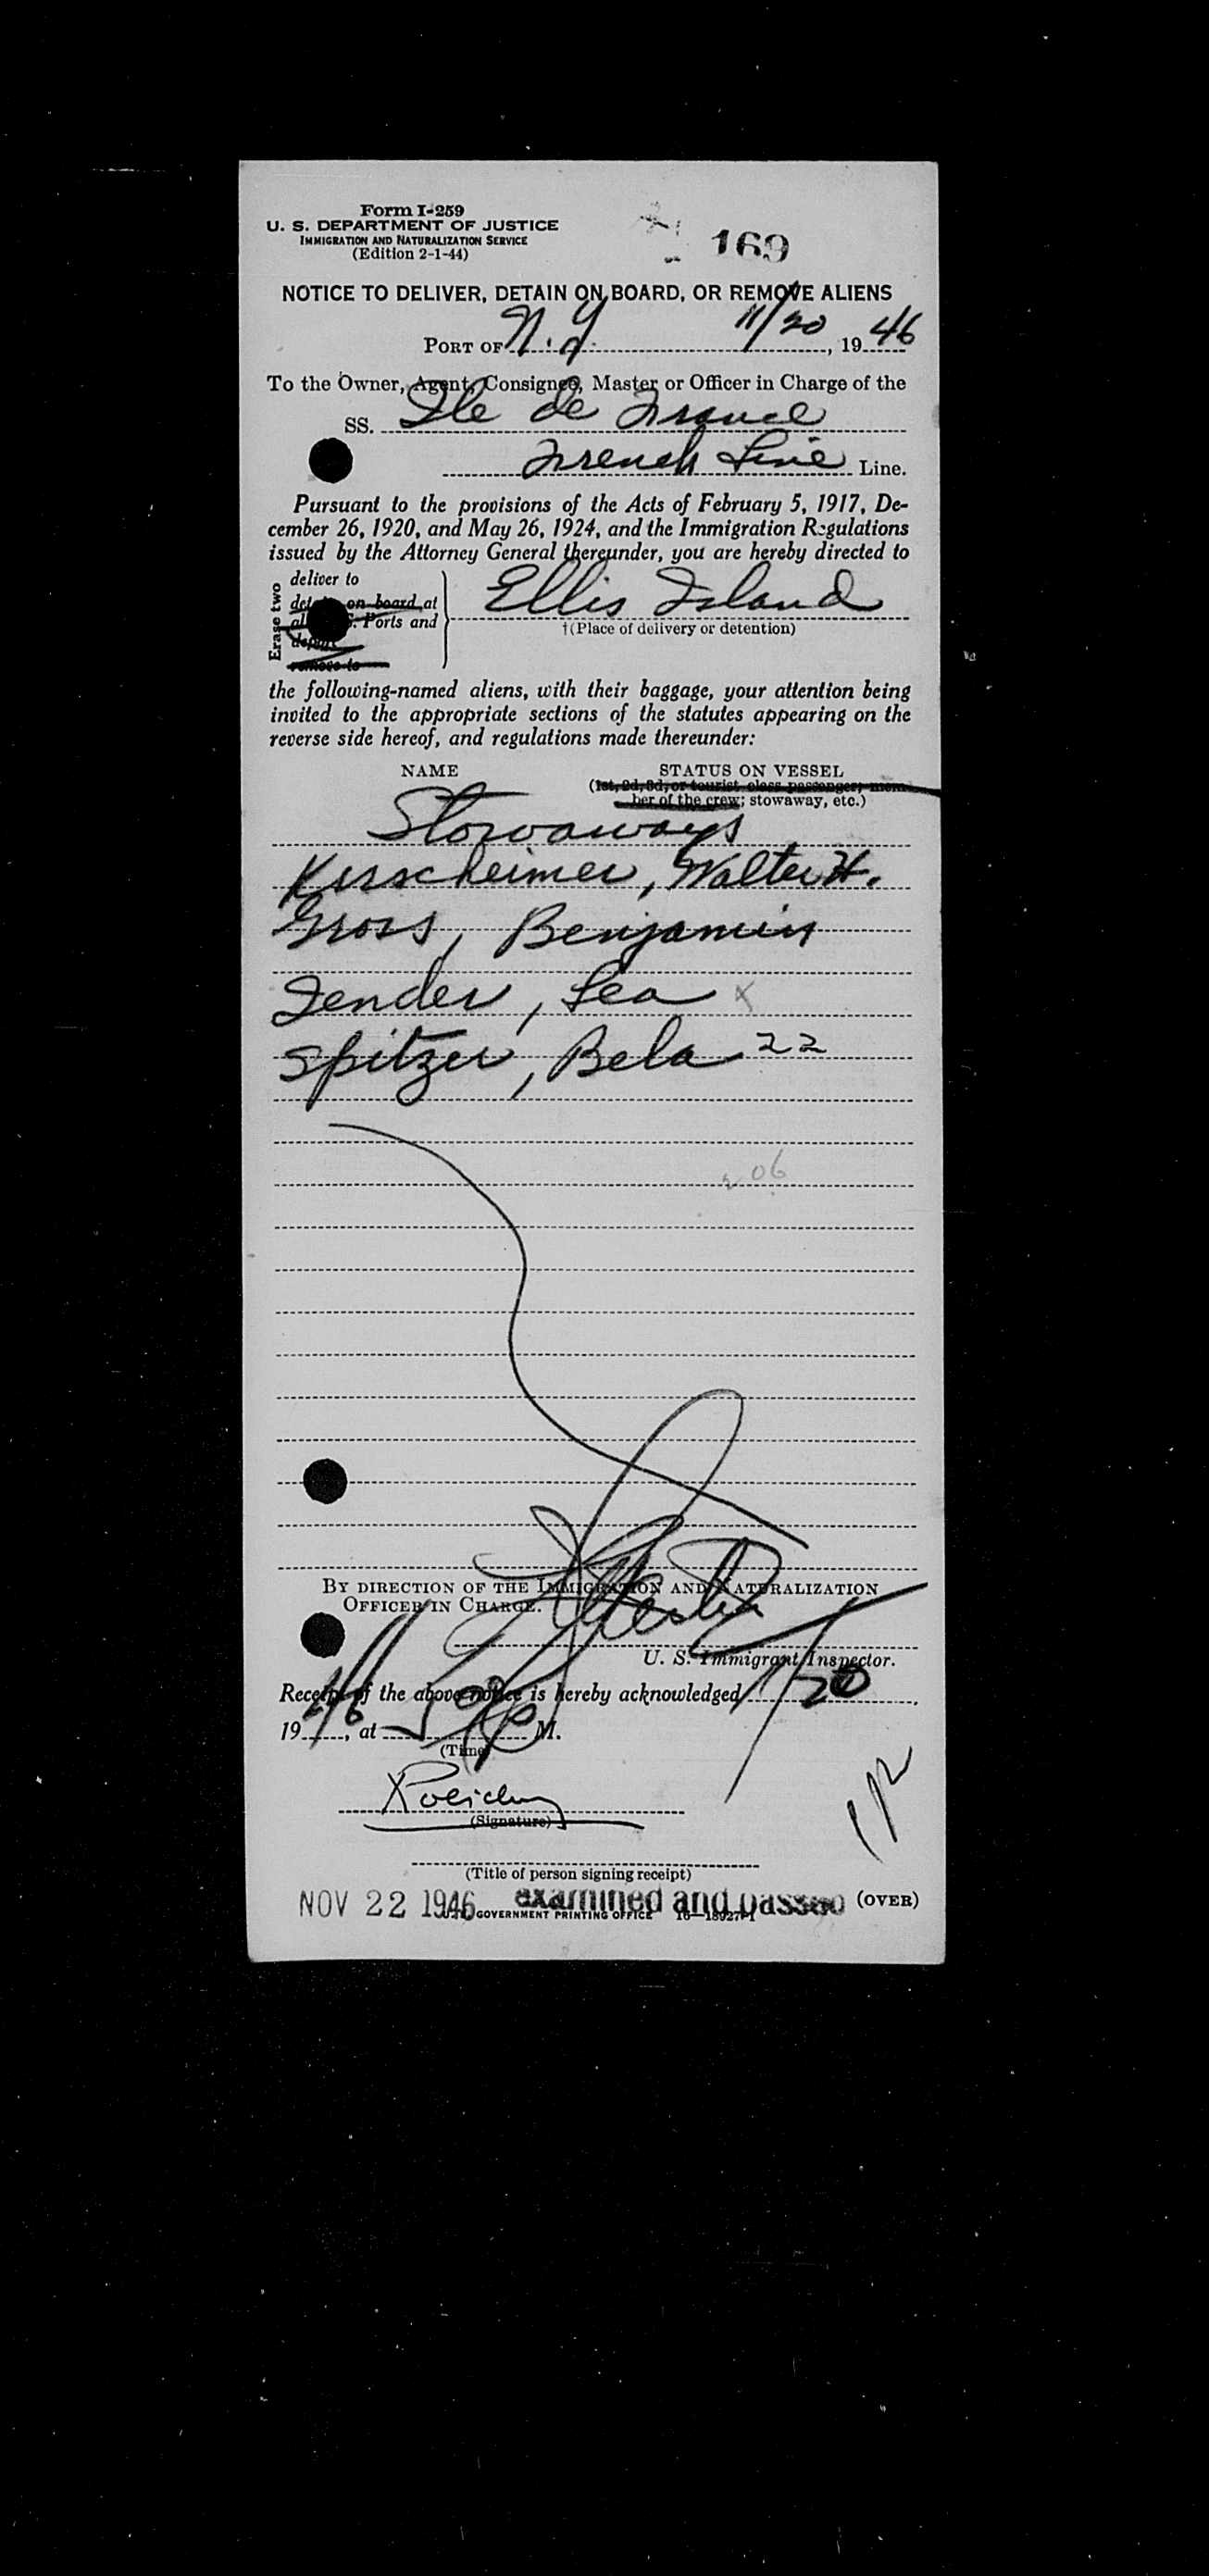 Form I-259
U. S. DEPARTMENT OF JUSTICE
IMMIGRATION AND NATURALIZATION SERVICE
(Edition 2-1-44)
169
NOTICE TO DELIVER, DETAIN ON BOARD, OR REMOVE ALIENS
PORT OF N.Y. 11/20, 1946
To the Owner, Agent, Consignee, Master or Officer in Charge of the
SS. Ile de France
French Line Line.
Pursuant to the provisions of the Acts of February 5, 1917, De-
cember 26, 1920, and May 26, 1924, and the Immigration Regulations
issued by the Attorney General thereunder, you are hereby directed to
Erase two
deliver to
on board at
Ports and
depart
remove to
Ellis Island
†(Place of delivery or detention)
the following-named aliens, with their baggage, your attention being
invited to the appropriate sections of the statutes appearing on the
reverse side hereof, and regulations made thereunder:
NAME STATUS ON VESSEL
(1st, 2d, 3d, or tourist class passenger; mem-
ber of the crew; stowaway, etc.)
Stowaways
Kirscheimer, Walter H.
Gross, Benjamin
Lea x
Spitzer, Bela 22
06
BY DIRECTION OF THE IMMIGRATION AND NATURALIZATION
OFFICER IN CHARGE.
U. S. Immigrant Inspector.
Receipt of the above notice is hereby acknowledged 11/20,
1946, at M.
(Time)
(Signature)
(Title of person signing receipt)
NOV 22 1946 examined and passed (OVER)
GOVERNMENT PRINTING OFFICE 16—18927-1